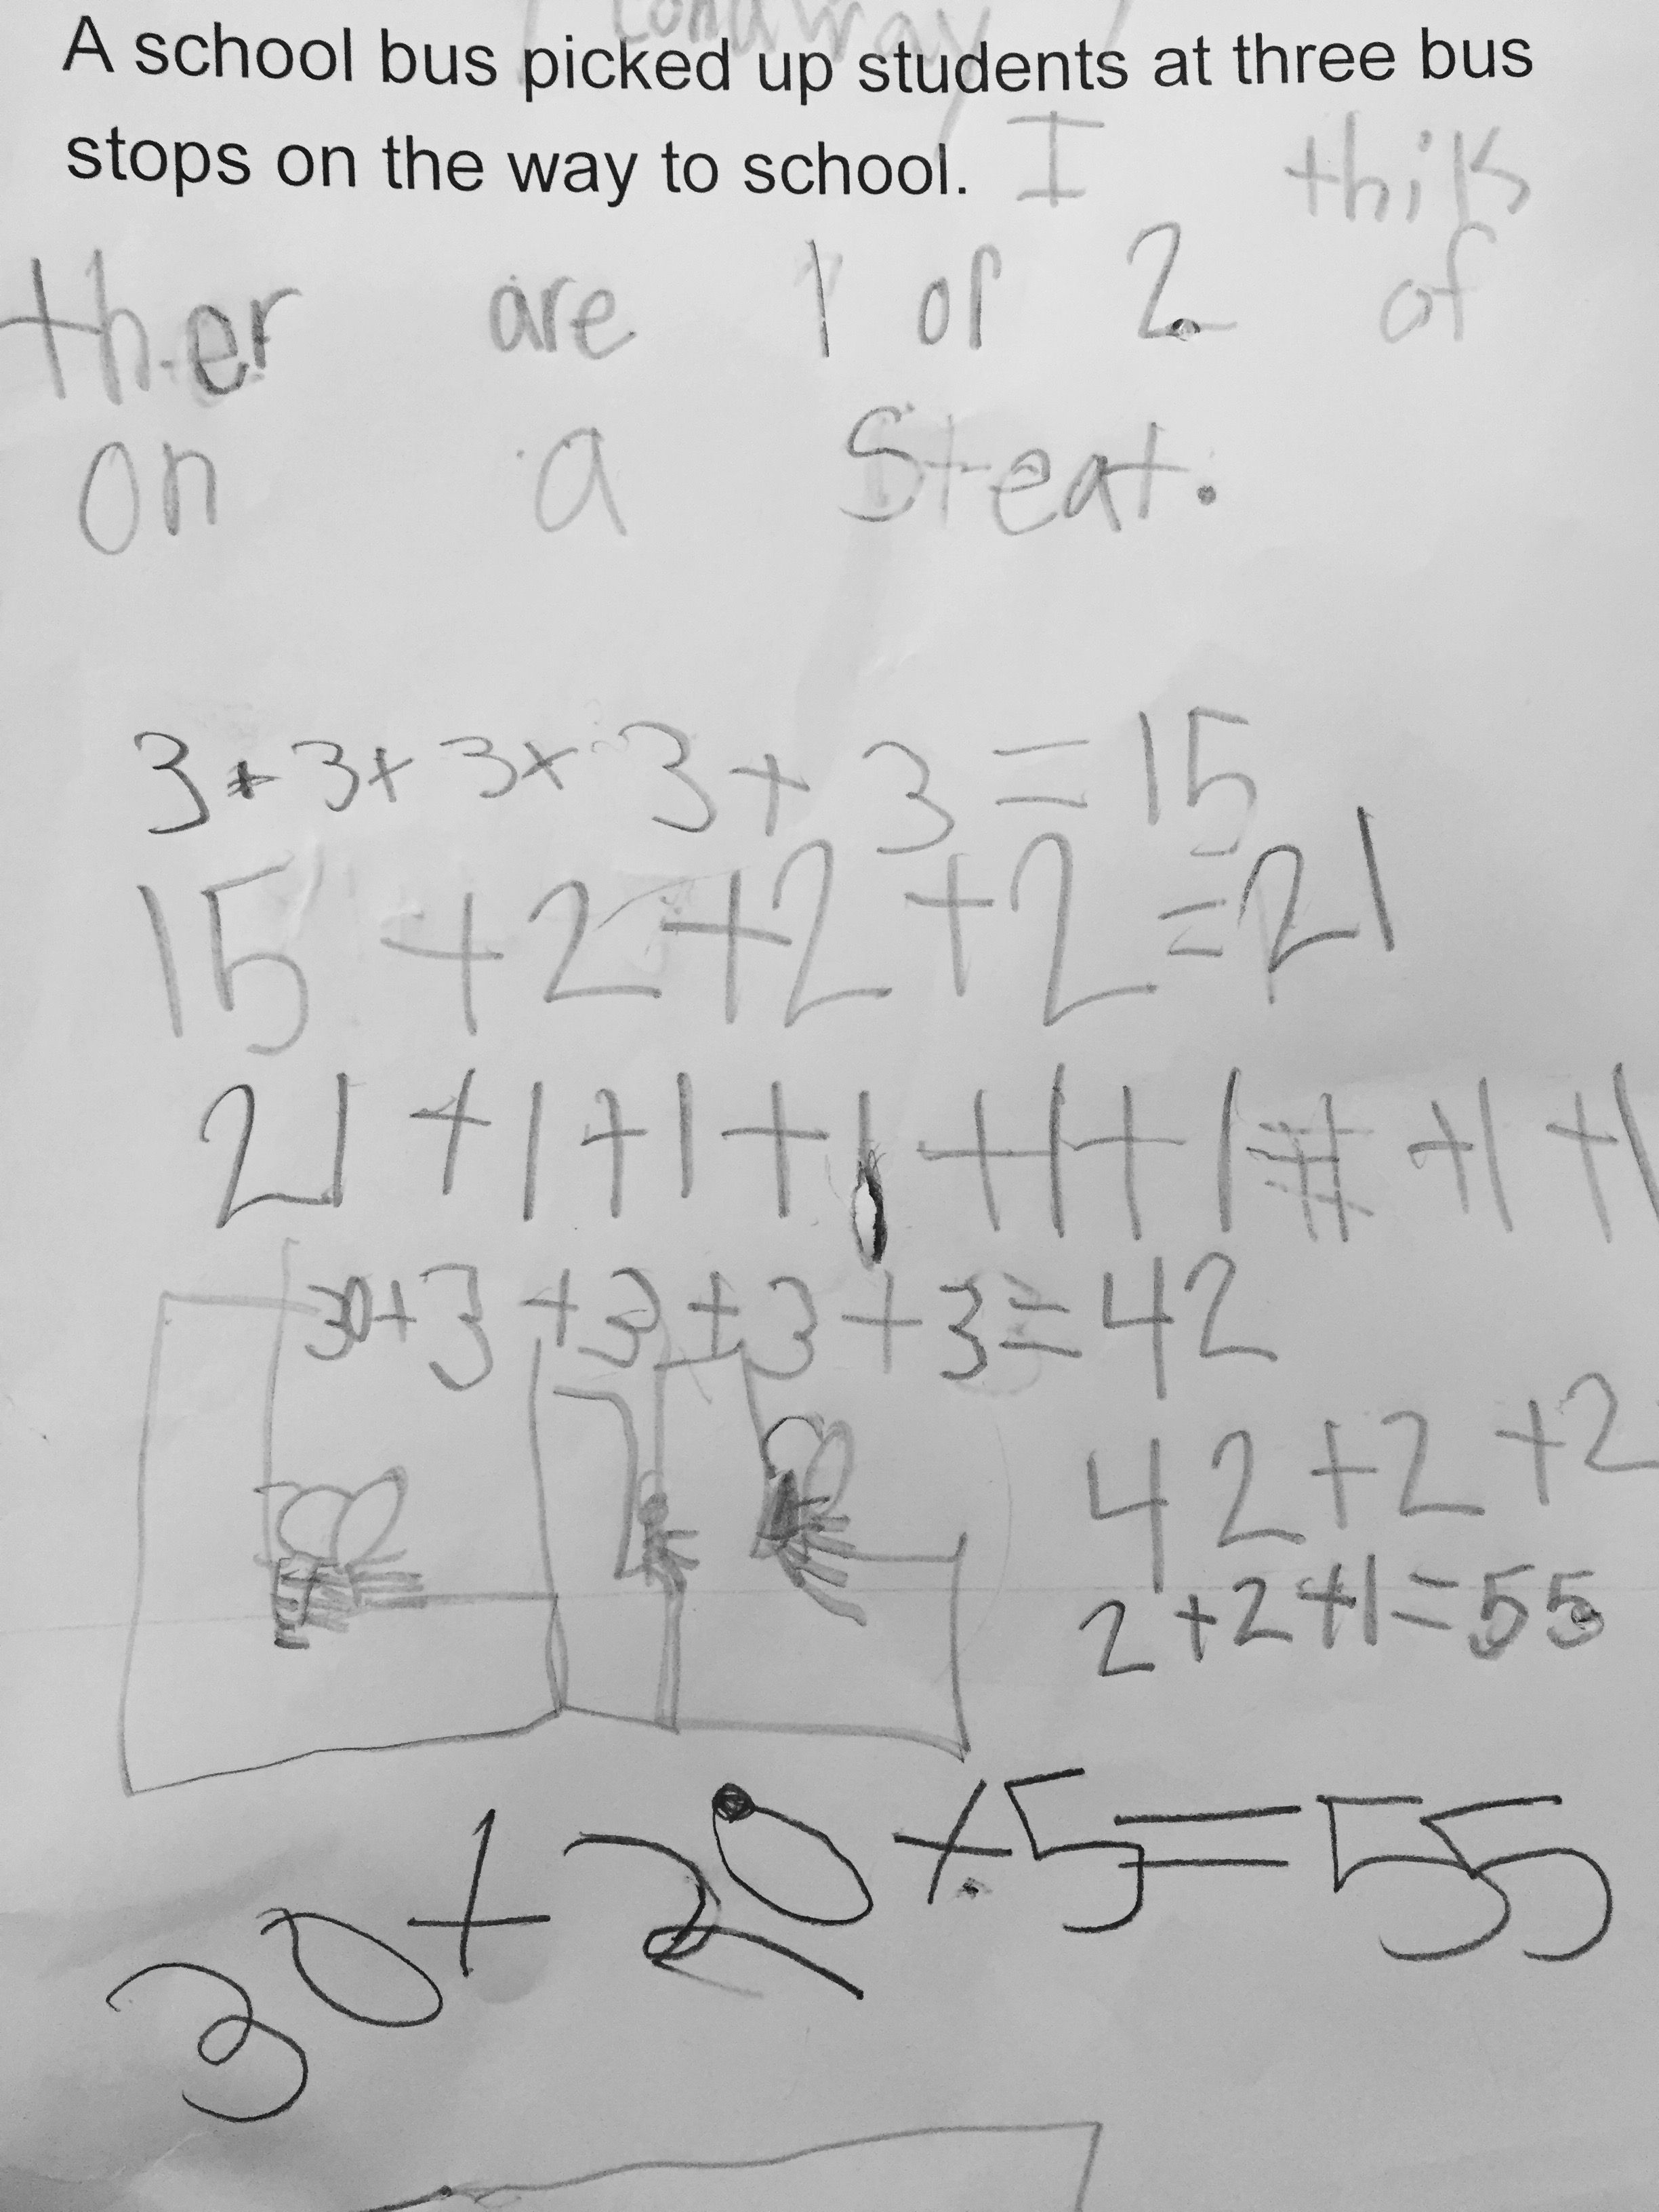 A school bus picked up students at three bus
stops on the way to school. I thik
ther are 1 or 2 of
on a steat.
3+3+3+3+3=15
15+2+2+2=21
21+1+1+1+1+1 +1+1
30+3+3+3+3=42
42+2+2
2+2+1=55
30+20+5=55